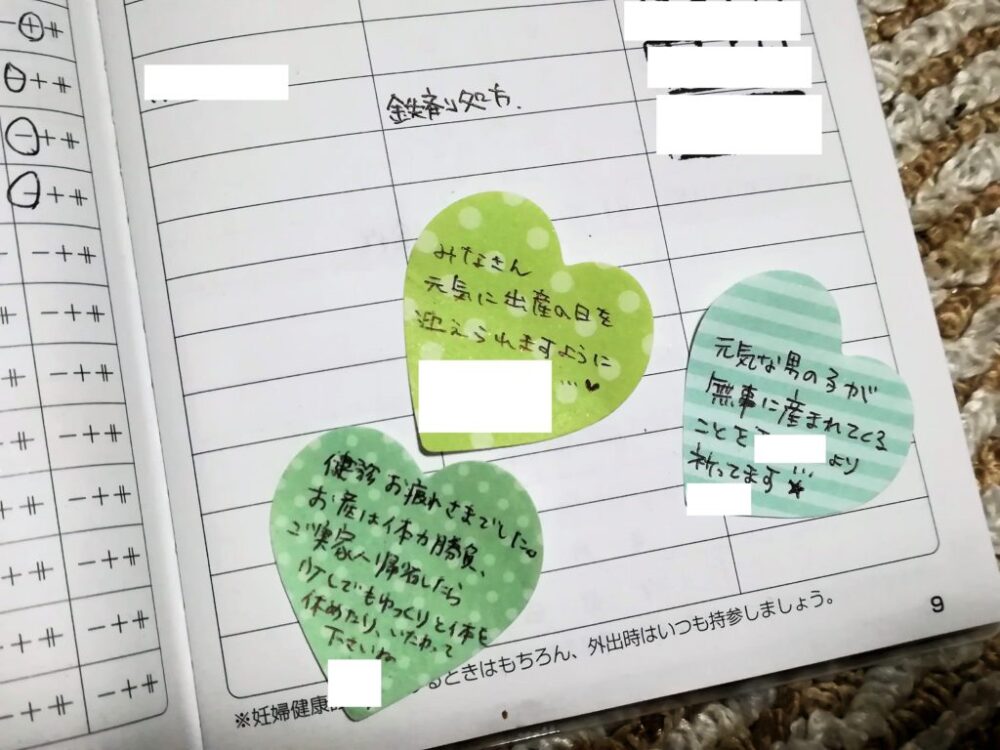 - ⊕ #
- + #
- + #
- + #
- + #
- + #
- + #
- + #
- + #
- + #
- + #
- + #
鉄剤処方.
みなさん
元気に出産の日を
迎えられますように
…♥
元気な男の子が
無事に産まれてくる
ことを より
祈ってます…★
健診お疲れさまでした。
お産は体力勝負、
ご実家へ帰省したら
少しでもゆっくりと体を
休めたり、いたわって
下さいね
※妊婦健康 るときはもちろん、外出時はいつも持参しましょう。
9